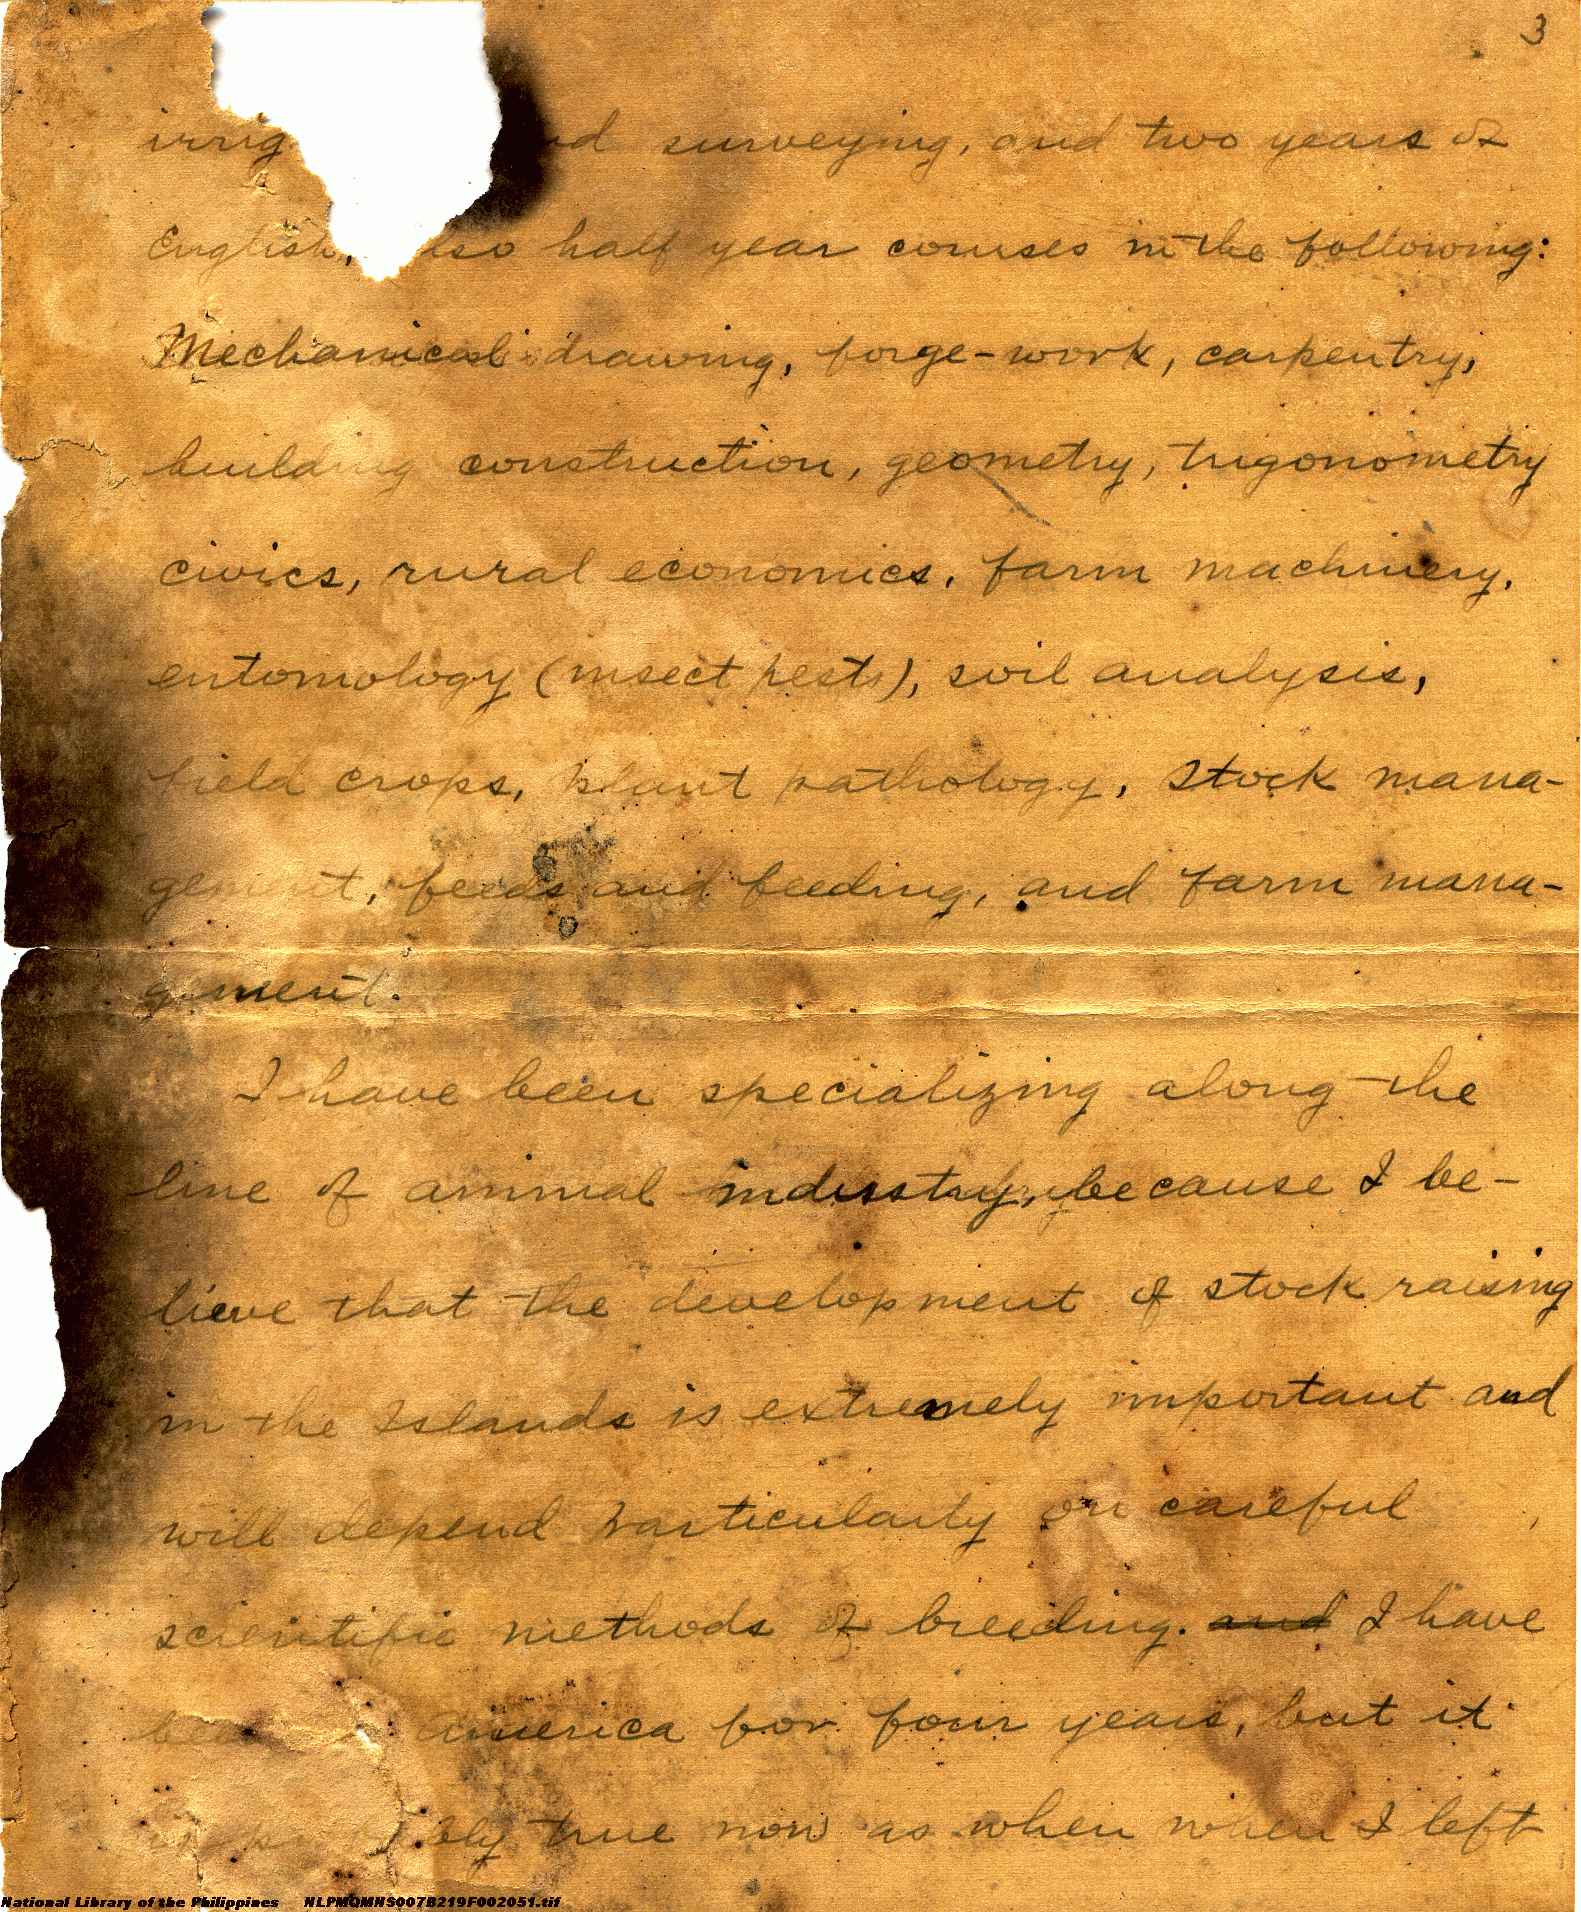 3
irrig nd surveying, and two years of
English, lso half year courses in the following:
Mechanical drawing, forge-work, carpentry,
building construction, geometry, trigonometry
civics, rural economics, farm machinery,
entomology (insect pests), soil analysis,
field crops, plant pathology, stock mana-
gement, feeds and feeding, and farm mana-
gement.
I have been specializing along the
line of animal industry, because I be-
lieve that the development of stock raising
in the Islands is extremely important and
will depend particularly on careful
scientific methods of breeding. and I have
America for four years, but it
bly true now as when when I left
National Library of the Philippines NLPMQMNS007B219F002051.tif